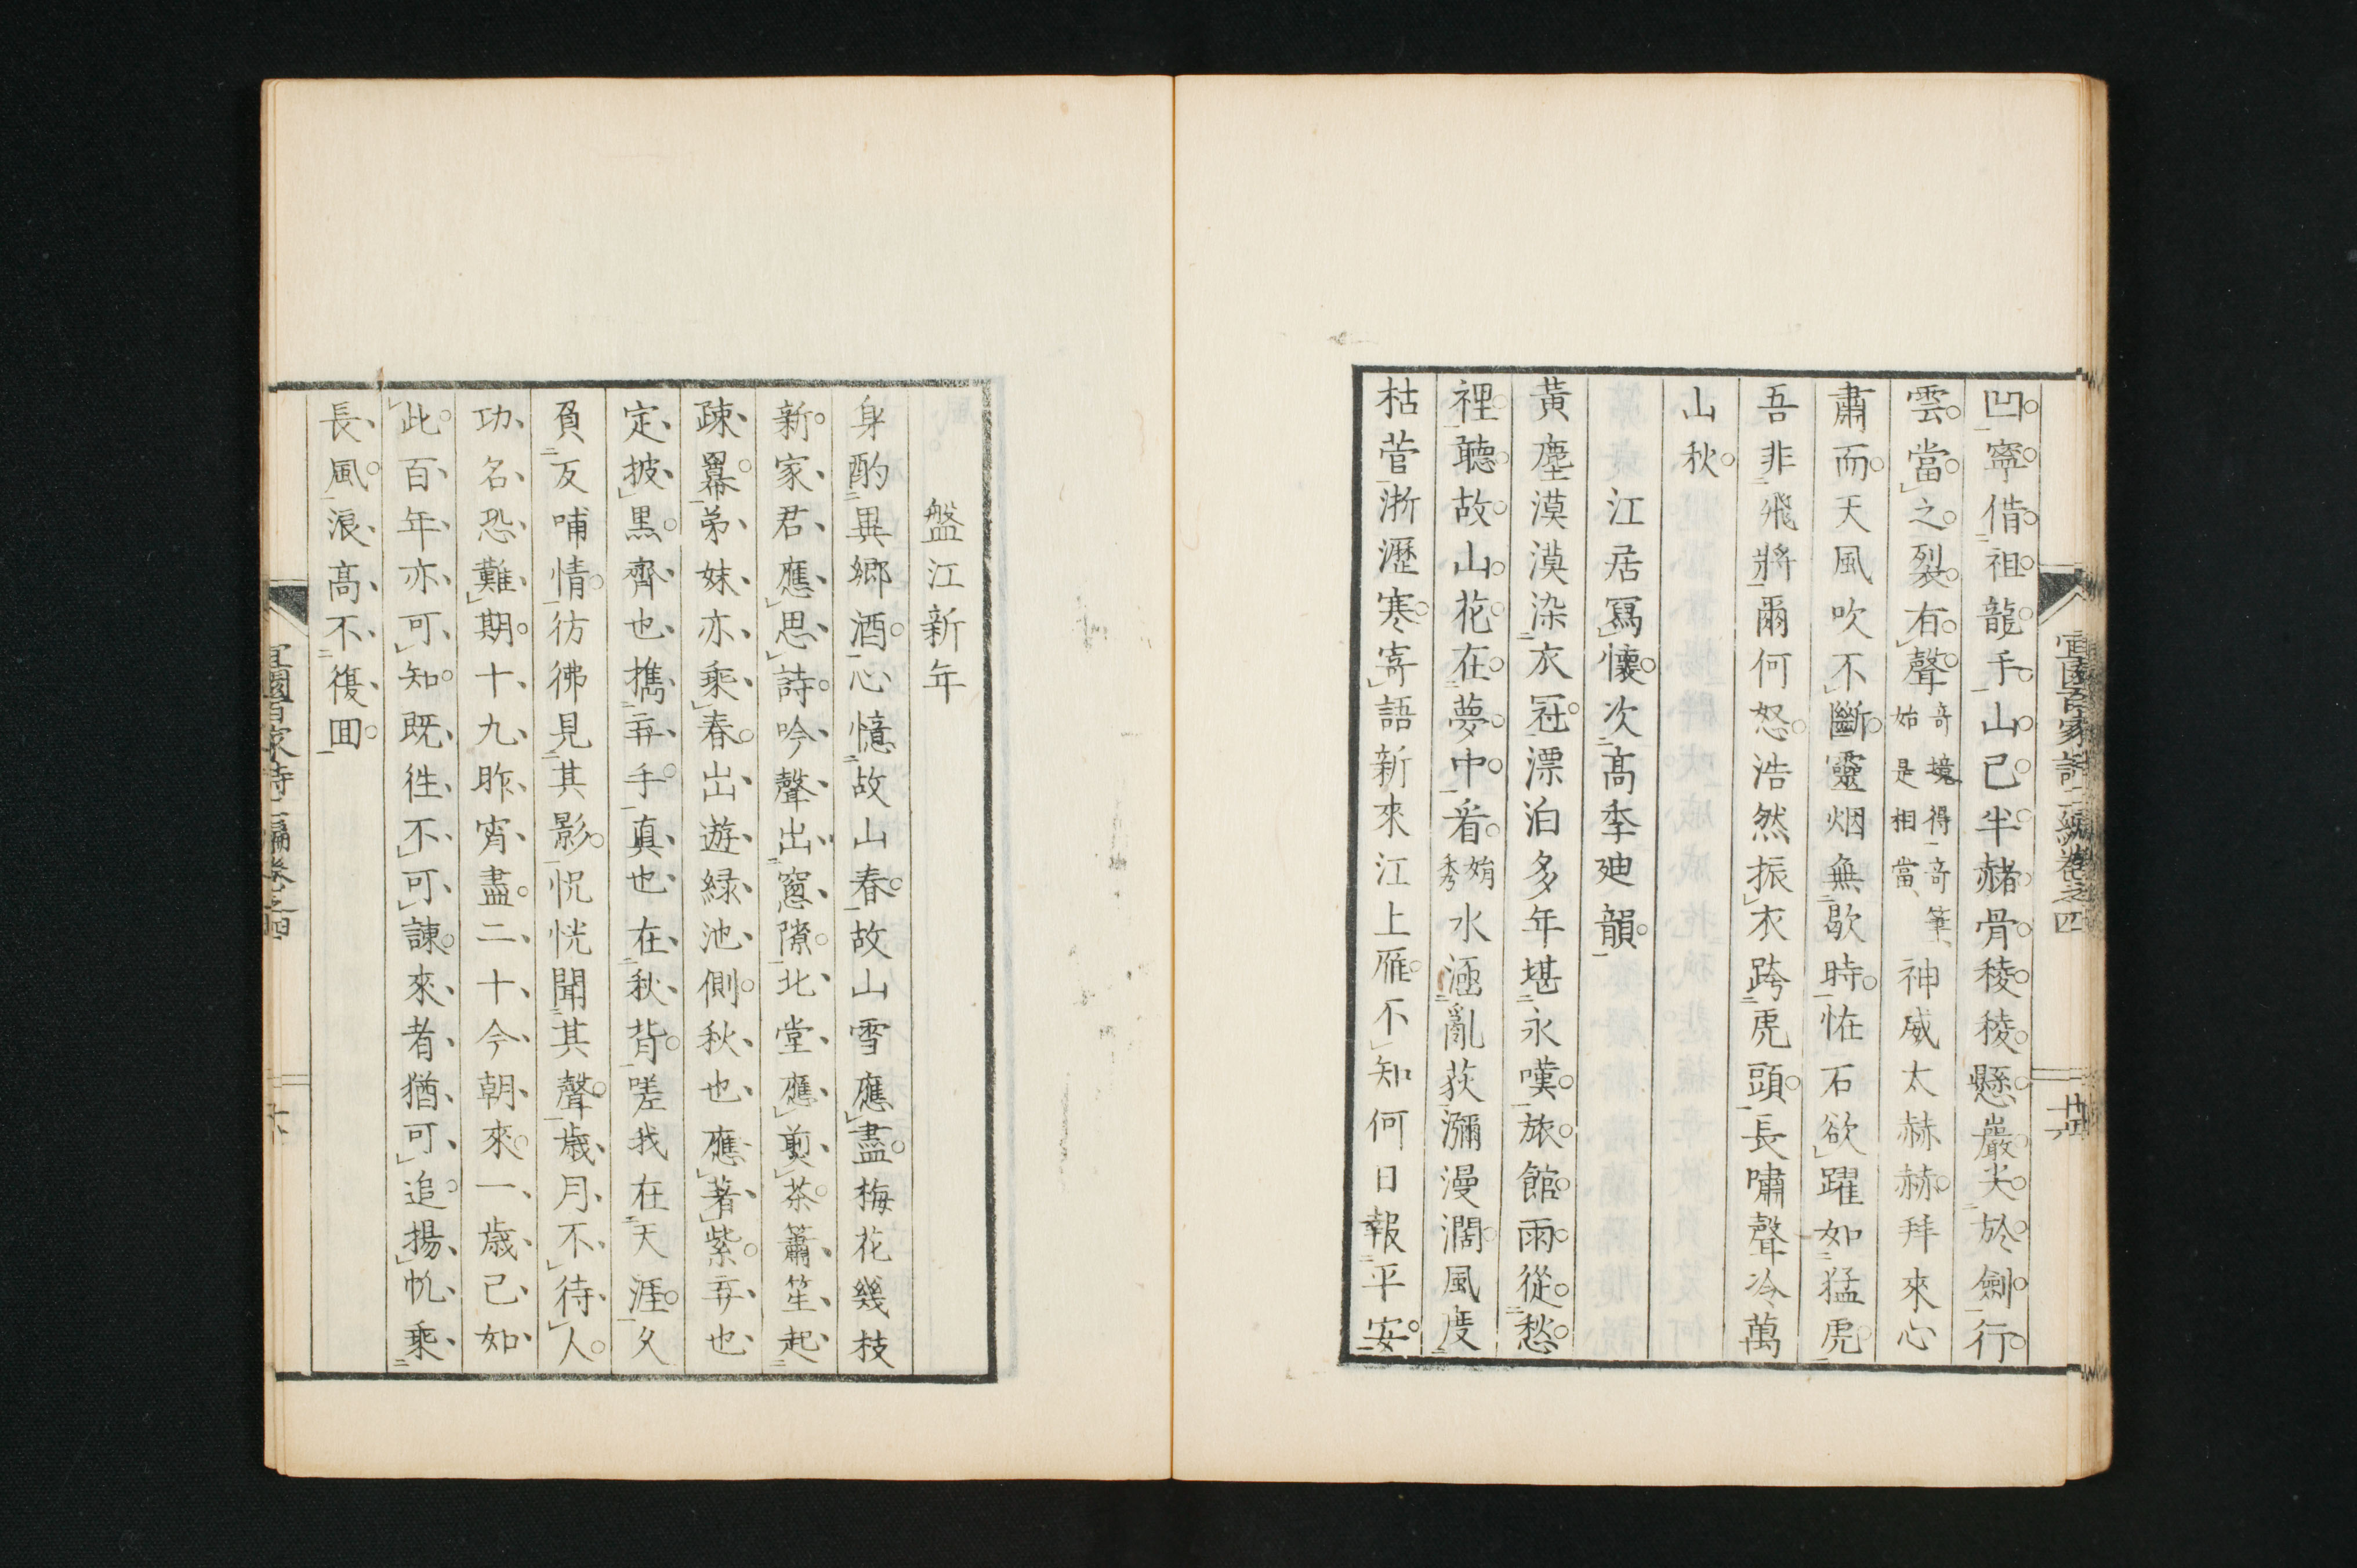 宜園百家詩二編卷之四
凹寧偕祖龍手山已半赭骨稜稜懸巖尖於劍行
雲當之裂有聲奇境得奇筆始是相當神威太赫赫拜來心
肅而天風吹不斷靈烟無歇時怪石欲躍如猛虎
吾非飛將爾何怒浩然振衣跨虎頭長嘯聲冷萬
山秋
江居寫懷次高季廸韻
黃塵漠漠染衣冠漂泊多年堪永嘆旅館雨從愁
裡聽故山花在夢中看娟秀水涵亂荻瀰漫濶風度
枯菅淅瀝寒寄語新來江上雁不知何日報平安
盤江新年
身酌異鄉酒心憶故山春故山雪應盡梅花幾枝
新家君應思詩吟聲出窻隙北堂應煎茶簫笙起
疎羃弟妹亦乘春出遊緑池側秋也應著紫弄也
定披黒齊也携弄手真也在秋背嗟我在天涯久
負反哺情彷彿見其影怳恍聞其聲歳月不待人
功名恐難期十九昨宵盡二十今朝來一歳已如
此百年亦可知既徃不可諫來者猶可追揚帆乘
長風浪高不復囬
宜園百家詩二編卷之四